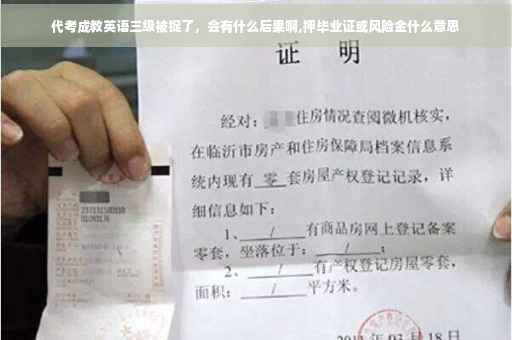 代考成教英语三级被捉了，会有什么后果啊,押毕业证或风险金什么意思
证 明
经对：住房情况查阅微机核实，
在临沂市房产和住房保障局档案信息系
统内现有 零 套房屋产权登记记录，详
细信息如下：
1、 / 有商品房网上登记备案
零套，坐落位于： / ；
2、 / 有产权登记房屋零套，
面积： / 平方米。
月 18 日